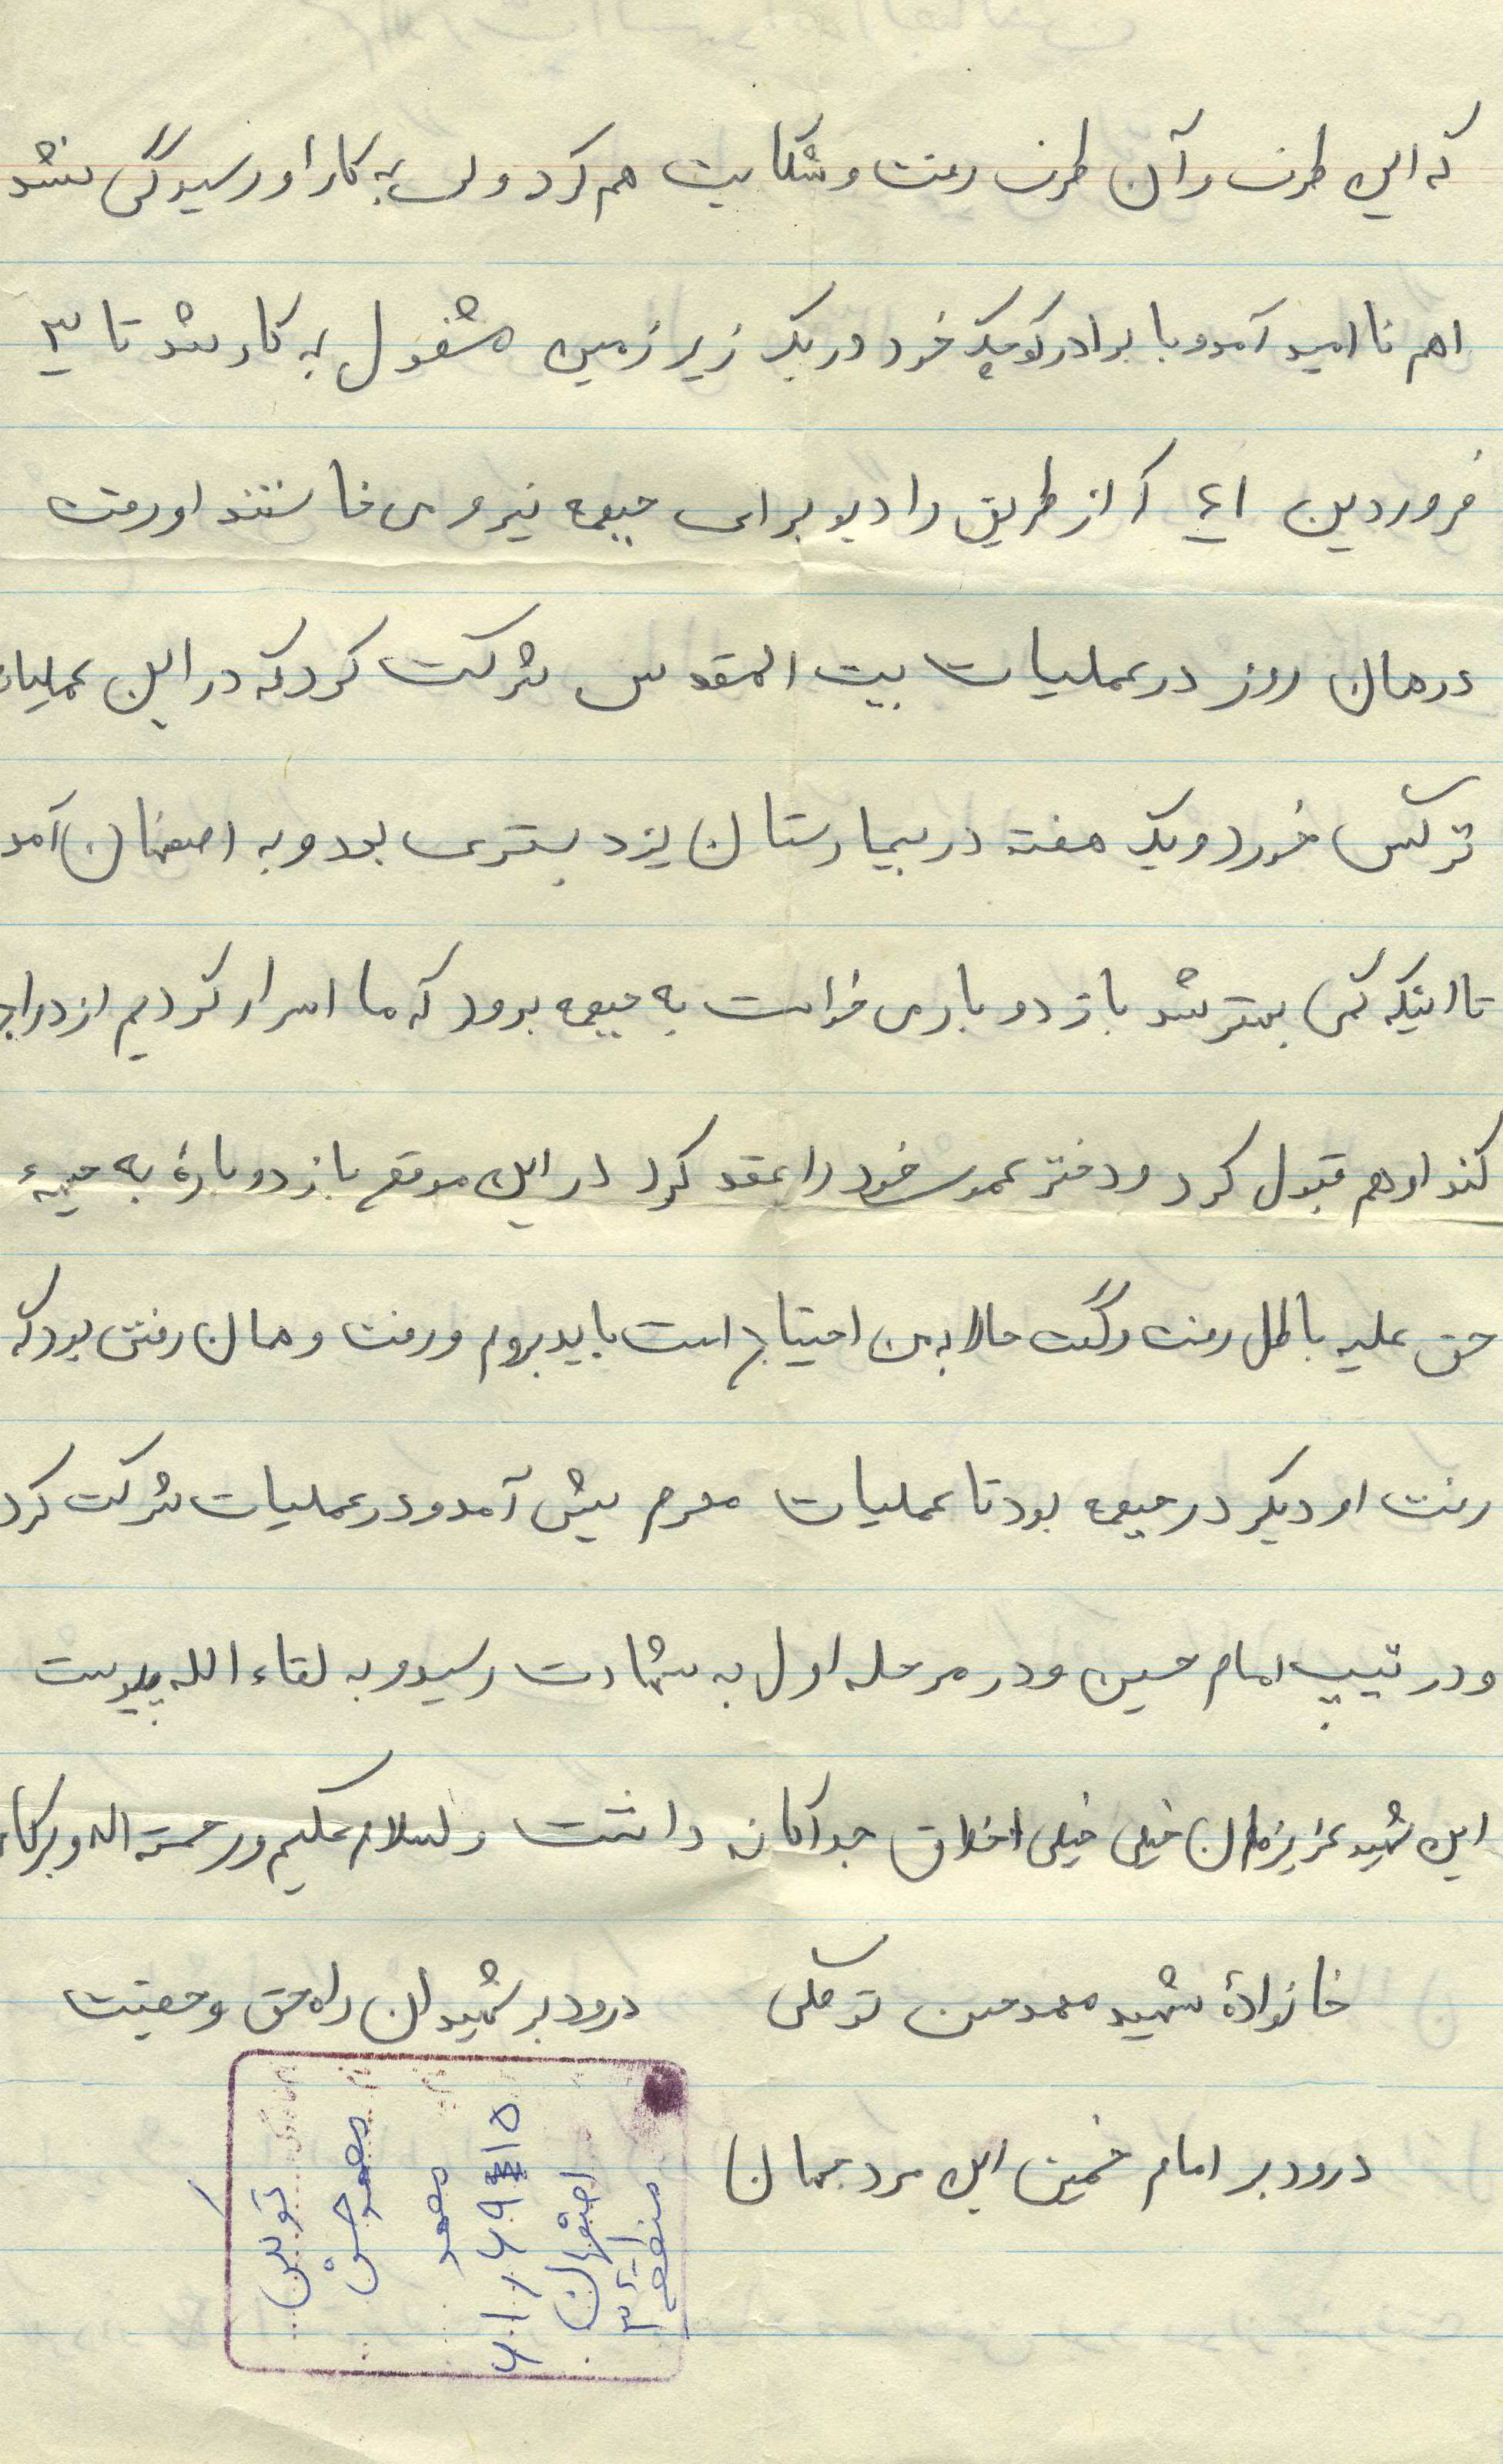 که این طرف و آن طرف رفت و شکایت هم کرد ولی به کار او رسیدگی نشد
اهم نا امید آمد و با برادر کوچک خود در یک زیر زمین مشغول به کار شد تا ۳
فروردین ۶۱ که از طریق رادیو برای جبهه نیروی خاستند او رفت
در همان روز در عملیات بیت المقدس شرکت کرد که در این عملیات
ترکش خورد و یک هفته در بیمارستان یزد بستری بود و به اصفهان آمد
تا اینکه کمی بهتر شد باز دو باری خواست به جبهه برود که ما اسرار کردیم ازدواج
کند او هم قبول کرد و دختر عموی خود را عقد کرد در این موقع باز دوبارۀ به جبهۀ
حق علیه باطل رفت و گفت حالا به من احتیاج است باید بروم و رفت و همان رفتن بود که
رفت او دیگر در جبهه بود تا عملیات محرم پیش آمد و در عملیات شرکت کرد
و در تیپ امام حسین و در مرحله اول به شهادت رسید و به لقاء الله پیوست
این شهید عزیزمان خیلی خیلی اخلاق جداگانه داشت ولسلام علیکم و رحمته اله و برکاته
خانوادۀ شهید محمد حسن توکلی درود بر شهیدان راه حق و حقیقت
درود بر امام خمینی این مرد جهان
توکلی
محمد حسن
محمد
اصفهان
منطقه ۳